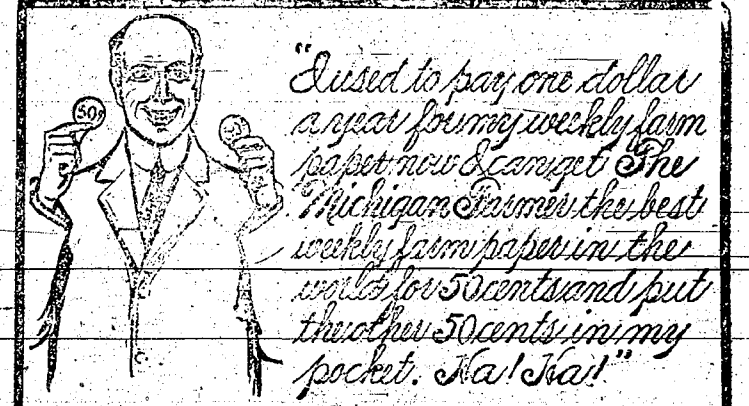 50¢
"I used to pay one dollar
a year for my weekly farm
paper now I can get The
Michigan Farmer the best
weekly farm paper in the
world for 50 cents and put
the other 50 cents in my
pocket. Ha! Ha!"